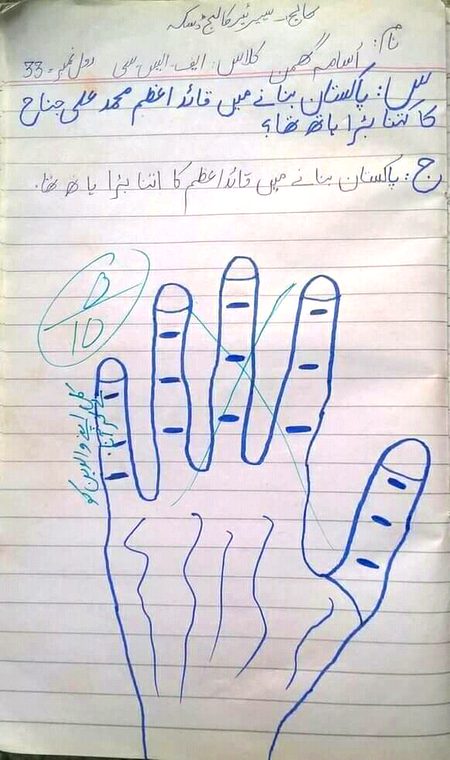 کالج۔ سپیرئیر کالج ڈسکہ
نام: اُسامہ گھمن کلاس: ایف۔ایس۔سی رول نمبر = 33
س: پاکستان بنانے میں قائد اعظم محمد علی جناح
کا کتنا بڑا ہاتھ تھا؟
ج: پاکستان بنانے میں قائد اعظم کا اتنا بڑا ہاتھ تھا۔
0/10
کل اپنے والدین کو
لے کر آنا۔